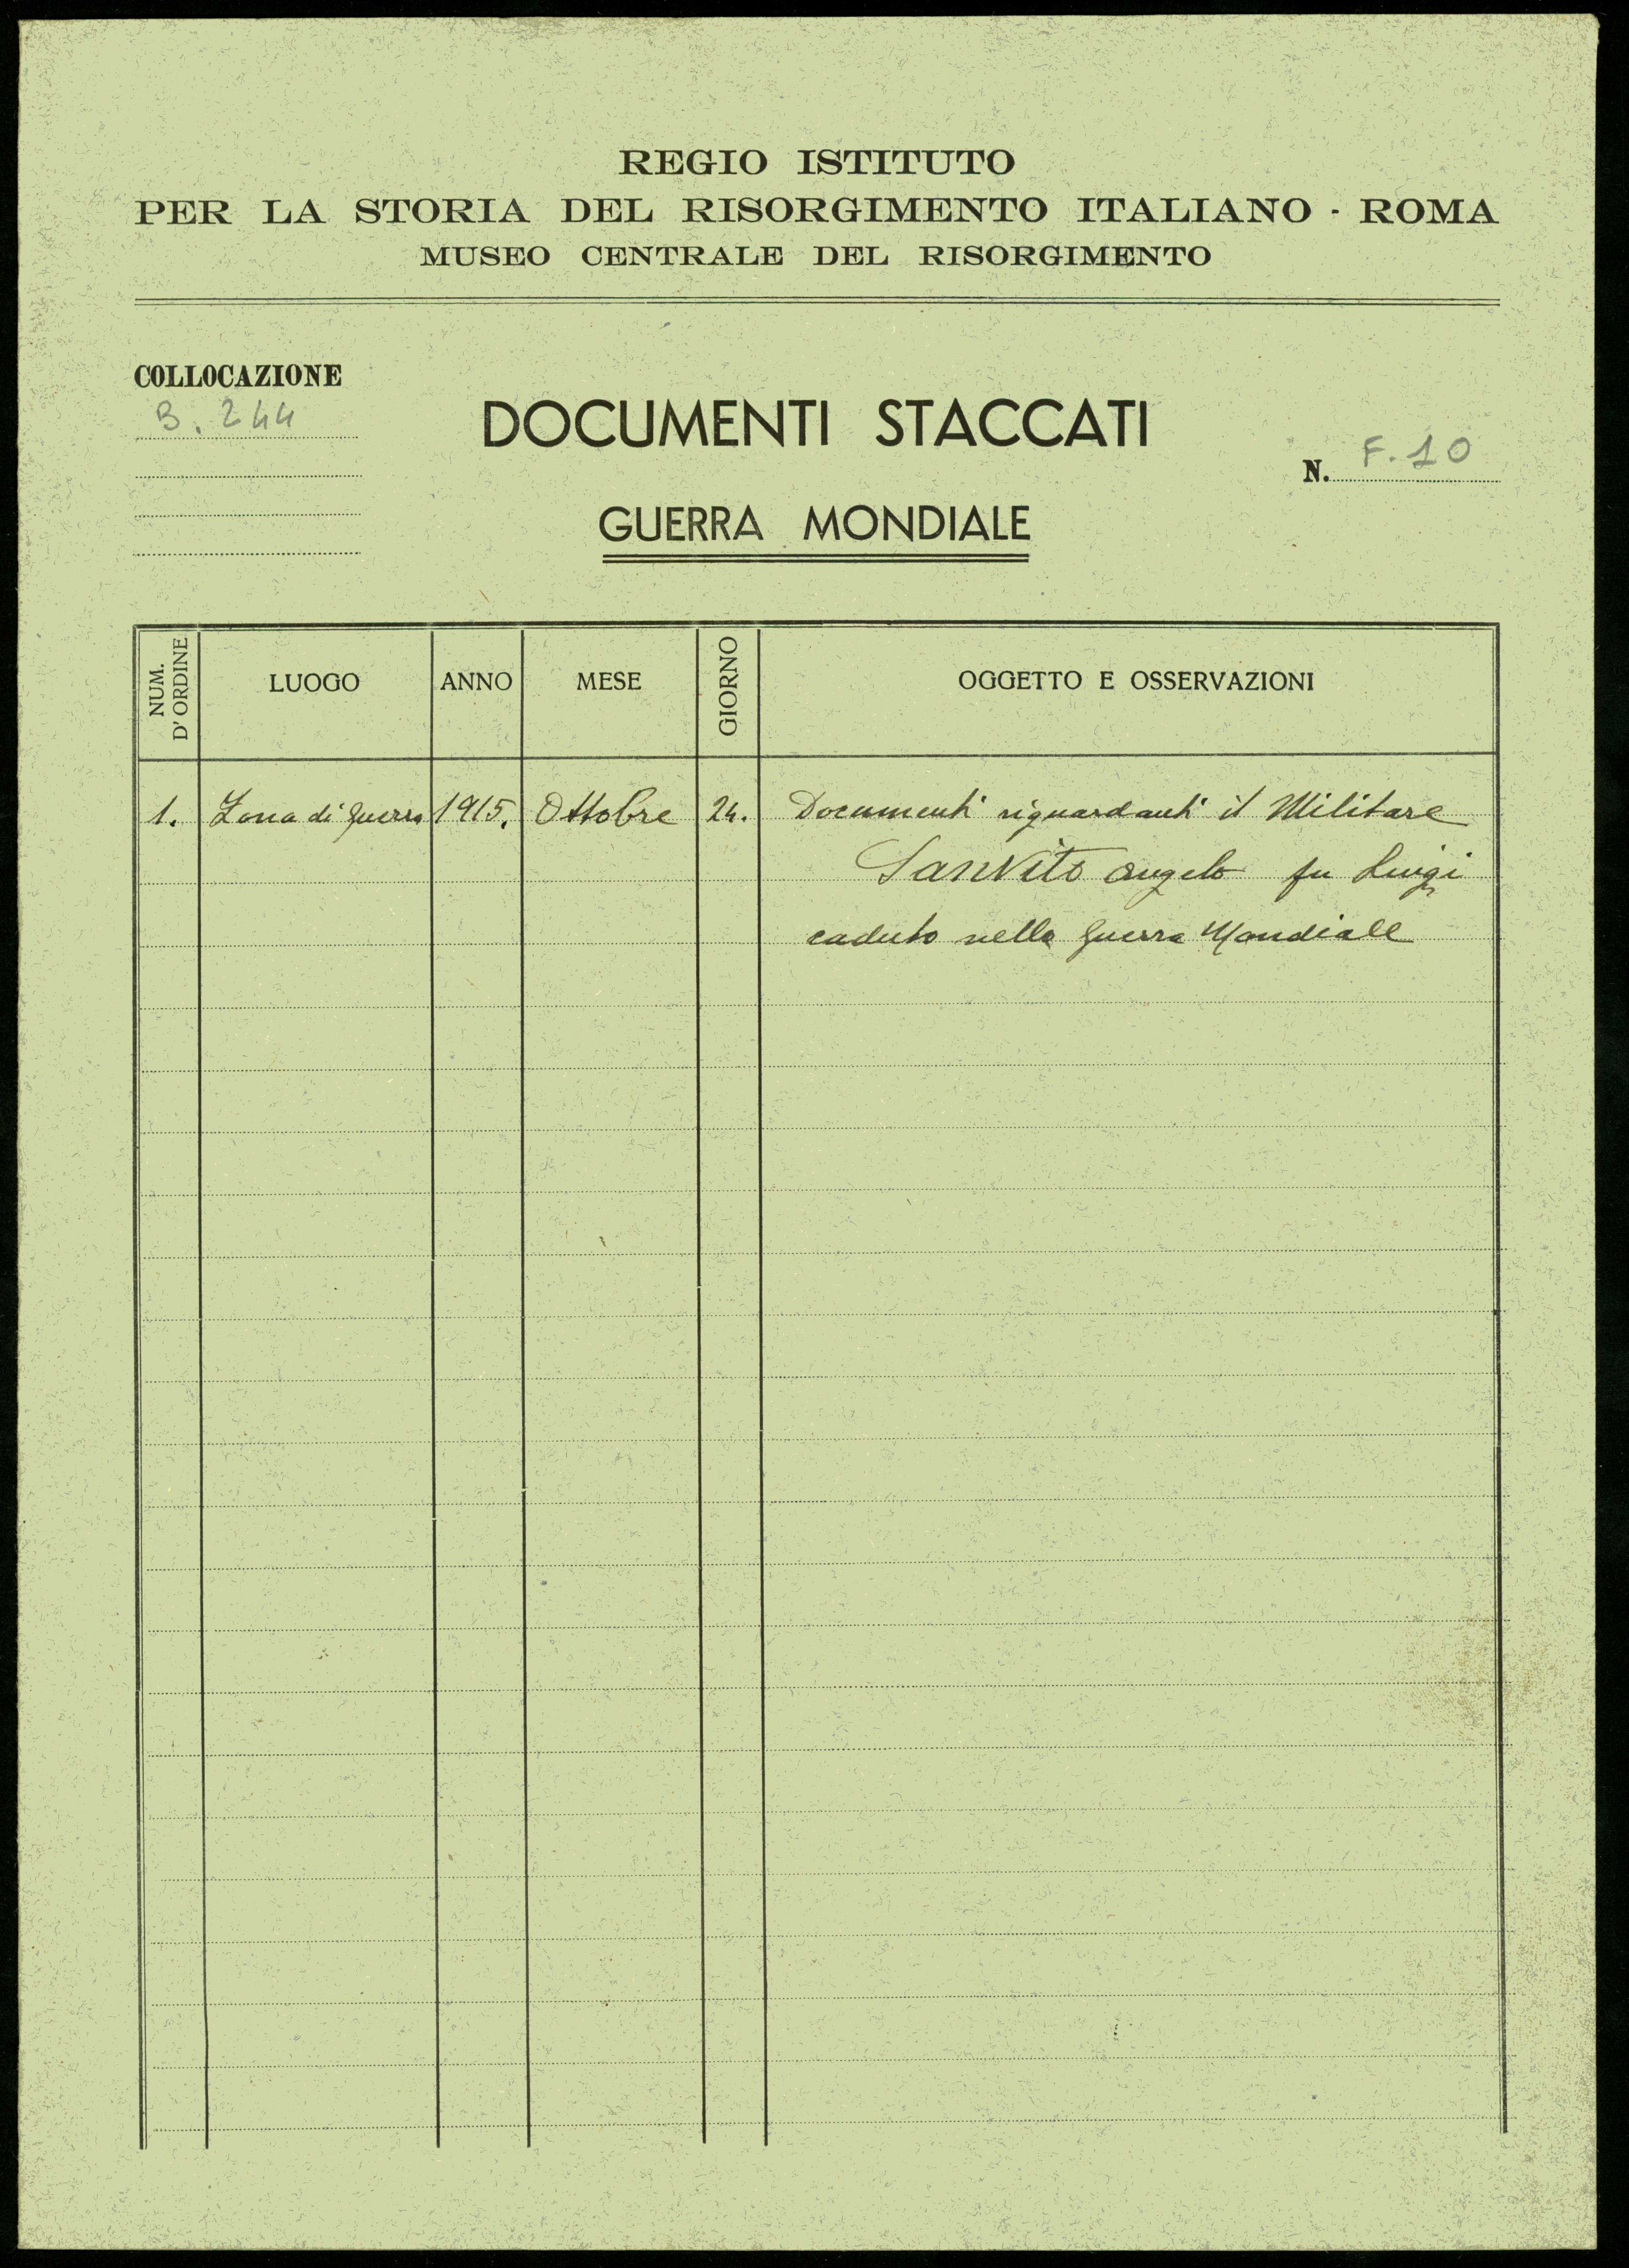 REGIO ISTITUTO
PER LA STORIA DEL RISORGIMENTO ITALIANO - ROMA
MUSEO CENTRALE DEL RISORGIMENTO
COLLOCAZIONE
B. 244
DOCUMENTI STACCATI
N. F. 10
GUERRA MONDIALE
NUM. D'ORDINE LUOGO ANNO MESE GIORNO OGGETTO E OSSERVAZIONI
1. Zona di guerra 1915. Ottobre 24. Documenti riguardanti il Militare
Sanvito Angelo fu Luigi
caduto nella guerra Mondiale